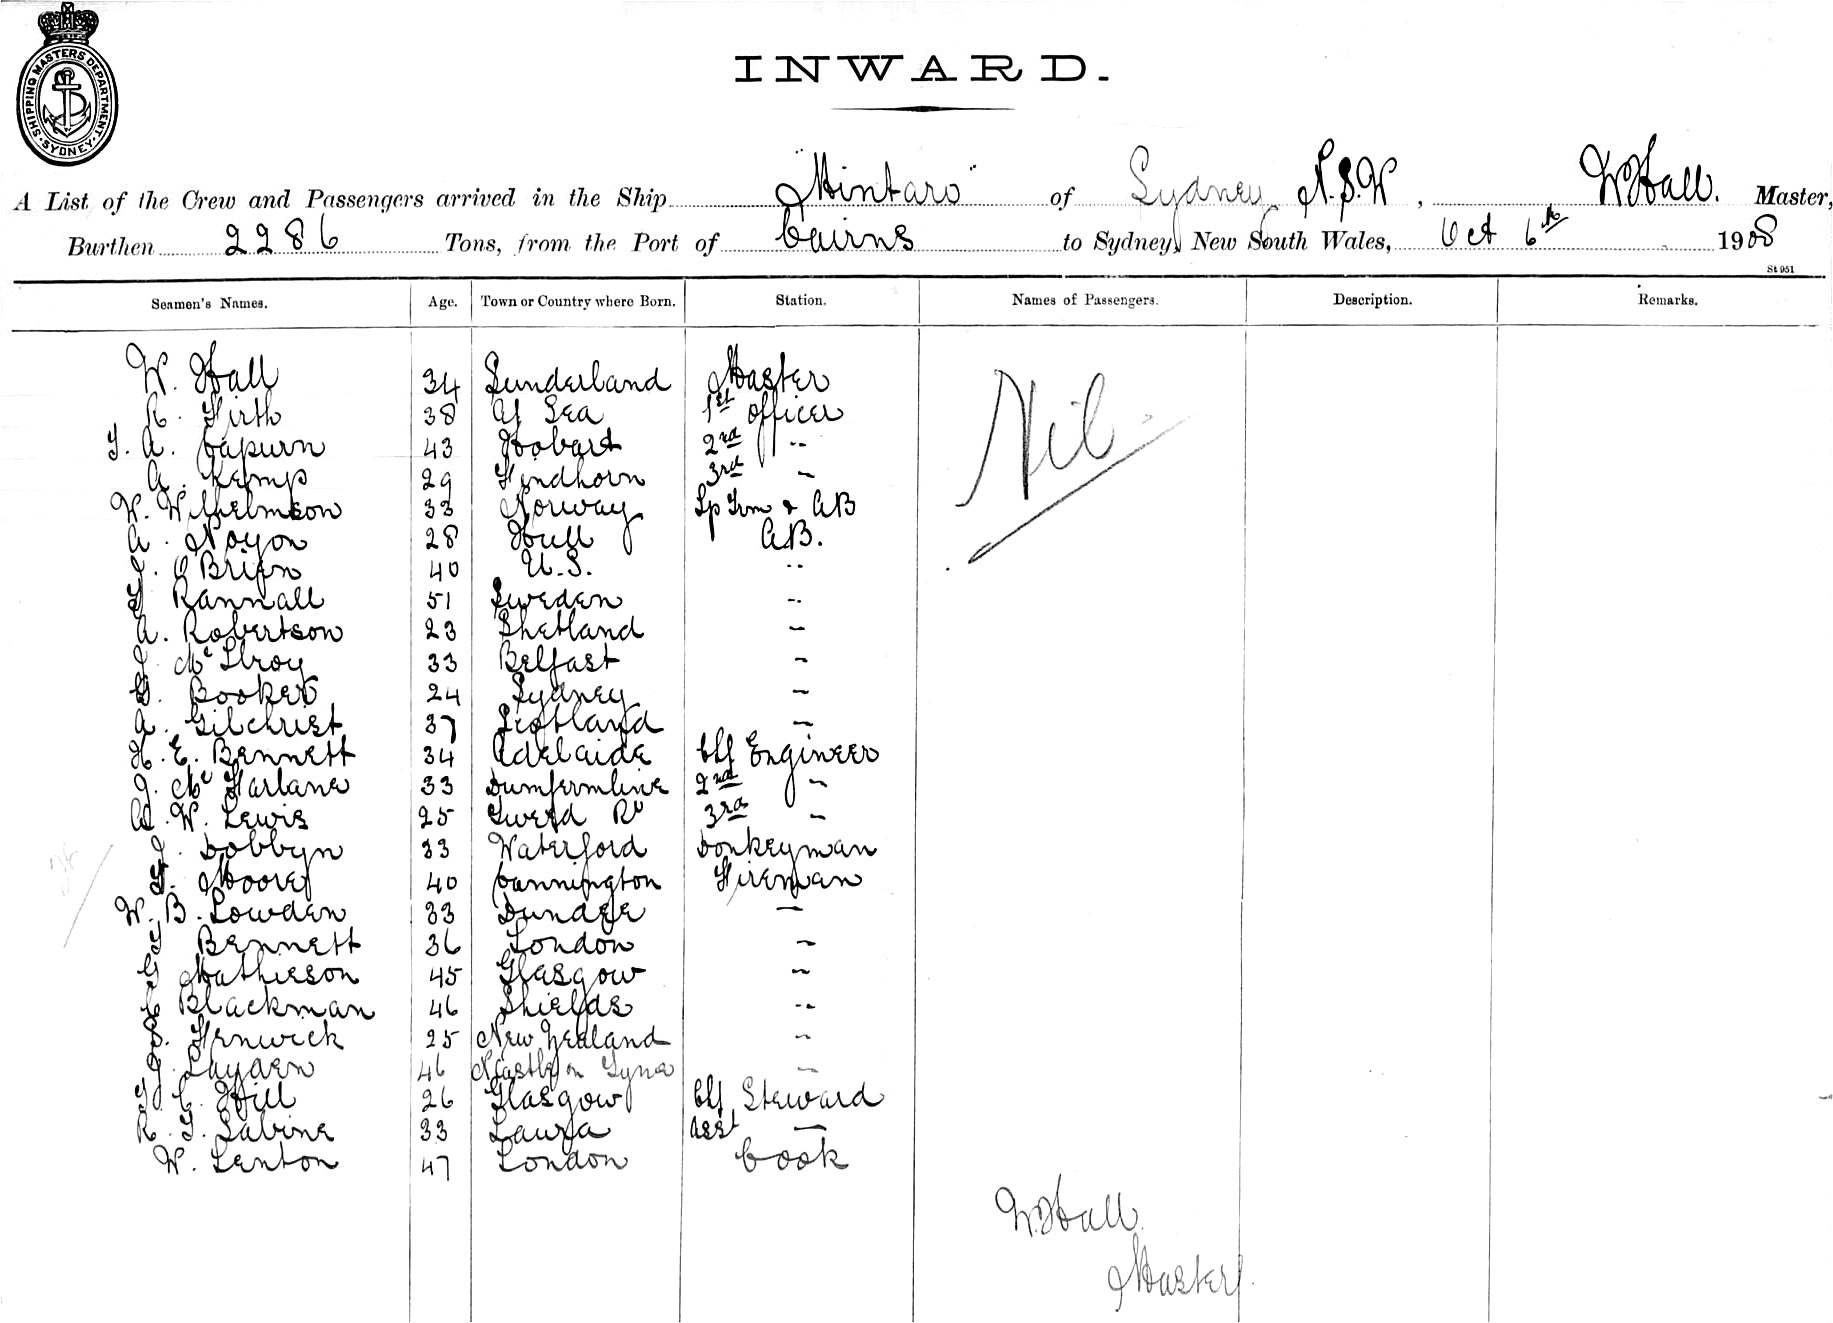 SHIPPING MASTERS DEPARTMENT
· SYDNEY ·
INWARD.
A List of the Crew and Passengers arrived in the Ship "Mintaro" of Sydney N.S.W, W Hall. Master,
Burthen 2286 Tons, from the Port of Cairns to Sydney, New South Wales, Oct 6th 1908
St 951
Seamen's Names. Age. Town or Country where Born. Station. Names of Passengers. Description. Remarks.
W. Hall 34 Sunderland Master
R. Firth 38 At Sea 1st Officer
T. A. Capurn 43 Hobart 2nd "
A. Kemp 29 Findhorn 3rd "
Nil
W. Wilhelmson 33 Norway Lp Trm & AB
A. Noyon 28 Hull AB.
J. O Brien 40 U.S. "
Rannall 51 Sweden "
A. Robertson 23 Shetland "
J. McIlroy 33 Belfast "
G. Booker 24 Sydney "
A. Gilchrist 37 Scotland "
H. E. Bennett 34 Adelaide Chf Engineer
J. McFarlane 33 Dumfermline 2nd "
A. W. Lewis 25 Tweed Rv 3rd "
J. Dobbyn 33 Waterford Donkeyman
Moore 40 Cannington Fireman
W. B. Lowden 33 Dundee "
Bennett 36 London "
G Mathieson 45 Glasgow "
C Blackman 46 Shields "
Fenwick 25 New Zealand "
J. Layden 46 Ncastle on Tyne "
T. C. Hill 26 Glasgow Chf Steward
R. T. Sabine 33 Laura Asst "
W. Lenton 47 London Cook
W. Hall
Master